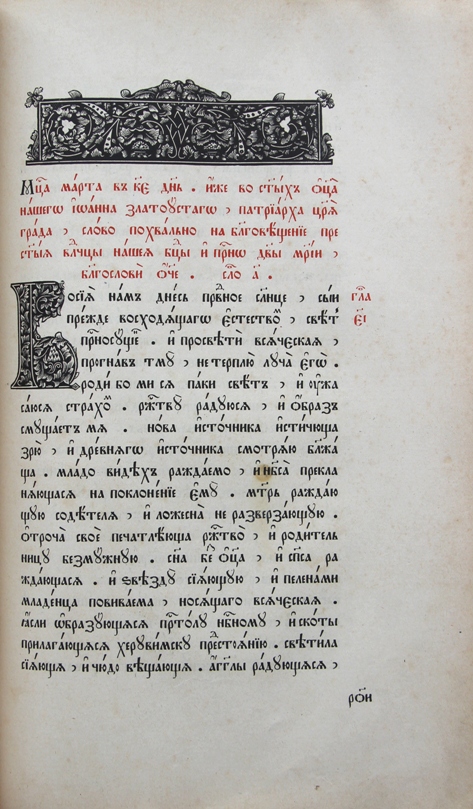 Мц҃а ма́рта въ к҃е дн҃ь . и҆́же во ст҃ы́хъ ѻ҆ц҃а̀
на́шегѡ і҆ѡа́нна златоꙋ́стагѡ , патрїа́рха цр҃ѧ
гра́да , сло́во похва́льно на бл҃гове́щенїе пре
ст҃ы́ѧ вл҃чцы на́шеѧ бц҃ы и҆ прⷭ҇нѡ дв҃ы мр҃і́и ,
бл҃гослови́ ѻ҆́ч҃е . сло а҃ .
Восїѧ̀ на́мъ дне́сь пра́вное сл҃нце , сы́й гла
пре́жде восходѧ́щагѡ є҆стество́ , свѣ́т є҃і
прⷭ҇носꙋ́щїе . и҆ просвѣтѝ всѧ́ческаѧ ,
прогна́въ тмꙋ̀ , не терплю̀ лꙋча̀ є҆гѡ̀ .
роди́ бо ми сѧ па́ки свѣ́тъ , и҆ ᲂу҆жа
са́юсѧ стра́хо . ржⷭ҇твꙋ̀ ра́дꙋюсѧ , и҆ ѻ҆́бразъ
смꙋща́етъ мѧ . но́ва и҆сто́чника и҆стичю́ща
зрю̀ , и҆ дре́внѧгѡ и҆сто́чника смотрѧ́ю бѣжа́
ща . мла́до ви́дѣхъ ражда́емо , и҆ нб҃са̀ прекла
нѧ́ющасѧ на поклоне́нїе є҆мꙋ̀ . мт҃рь ражда́ю
щꙋю содѣ́телѧ , и҆ ложесна̀ не разверза́ющꙋю .
ѻ҆троча̀ своѐ печатлѣ́юща ржⷭ҇тво̀ , и҆ роди́тель
ницꙋ безмꙋ́жнꙋю . сн҃а без̾ ѻ҆ц҃а̀ , и҆ сп҃са ра
жда́ющасѧ . и҆ ѕвѣздꙋ̀ сїѧ́ющꙋю , и҆ пелена́ми
младе́нца повива́ема , носѧ́щаго всѧ́ческаѧ .
ꙗ҆́сли ѡ҆бразꙋ́ющѧсѧ прⷭ҇то́лꙋ нбⷭ҇номꙋ , и҆ скоты̀
прилага́ющѧсѧ херꙋви́мскꙋ престоѧ́нїю . свѣти́ла
сїѧ́юща , и҆ чю́до вѣща́юща . а҆́гг҃лы ра́дꙋющѧсѧ ,
рѻ҃и